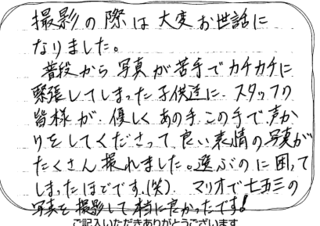 撮影の際は大変お世話に
なりました。
普段から写真が苦手でカチカチに
緊張してしまった子供達に、スタッフの
皆様が、優しくあの手、この手で声か
けをしてくださって、良い表情の写真が
たくさん撮れました。選ぶのに困って
しまったほどです。(笑) マリオで七五三の
写真を撮影して本当に良かったです!
ご記入いただきありがとうございます